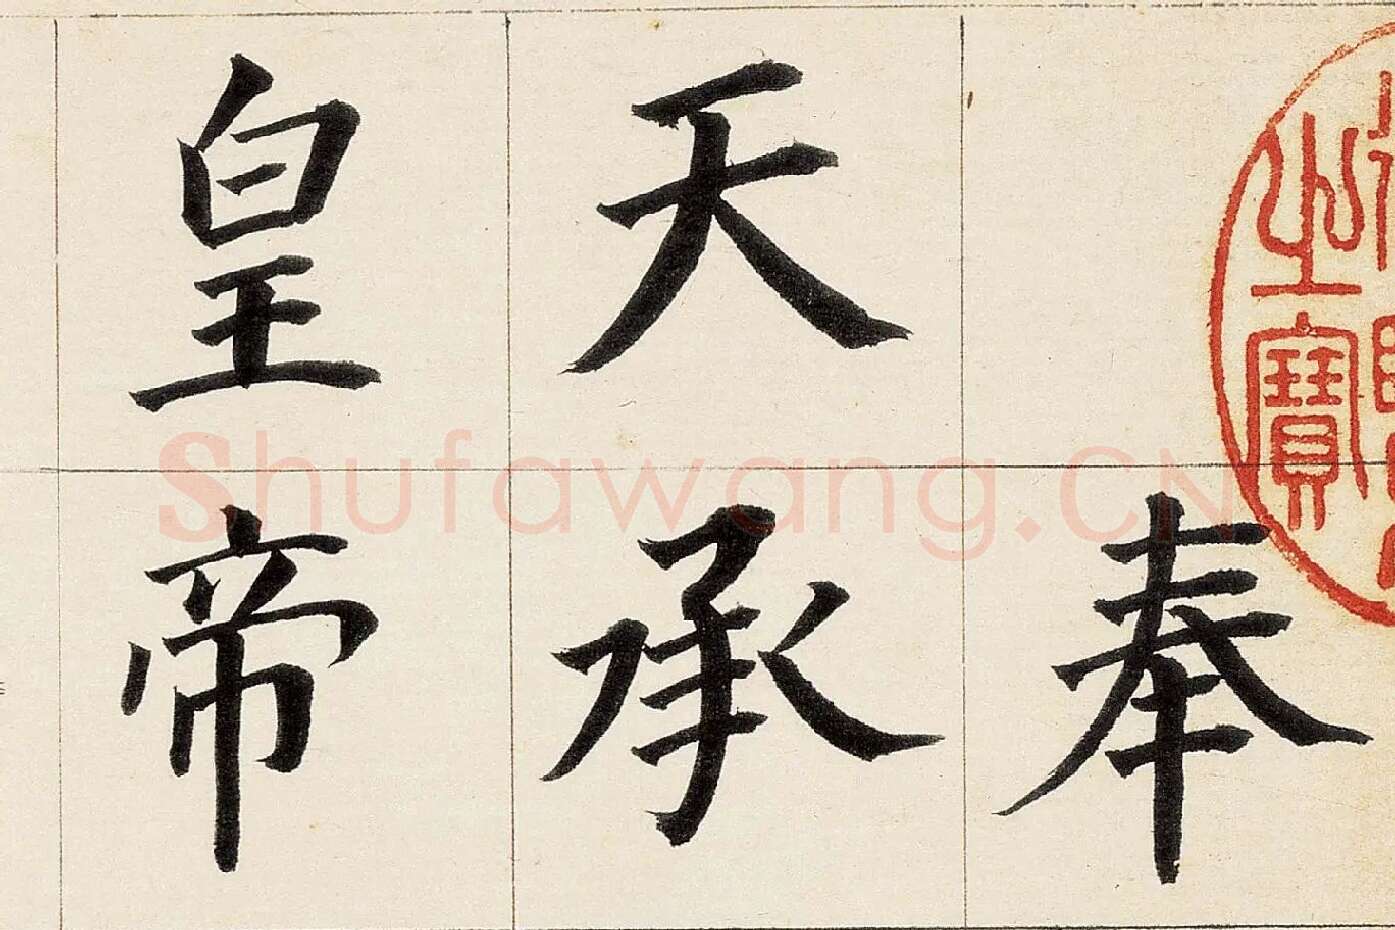 奉
天承
皇帝
之寶
Shufawang.CN